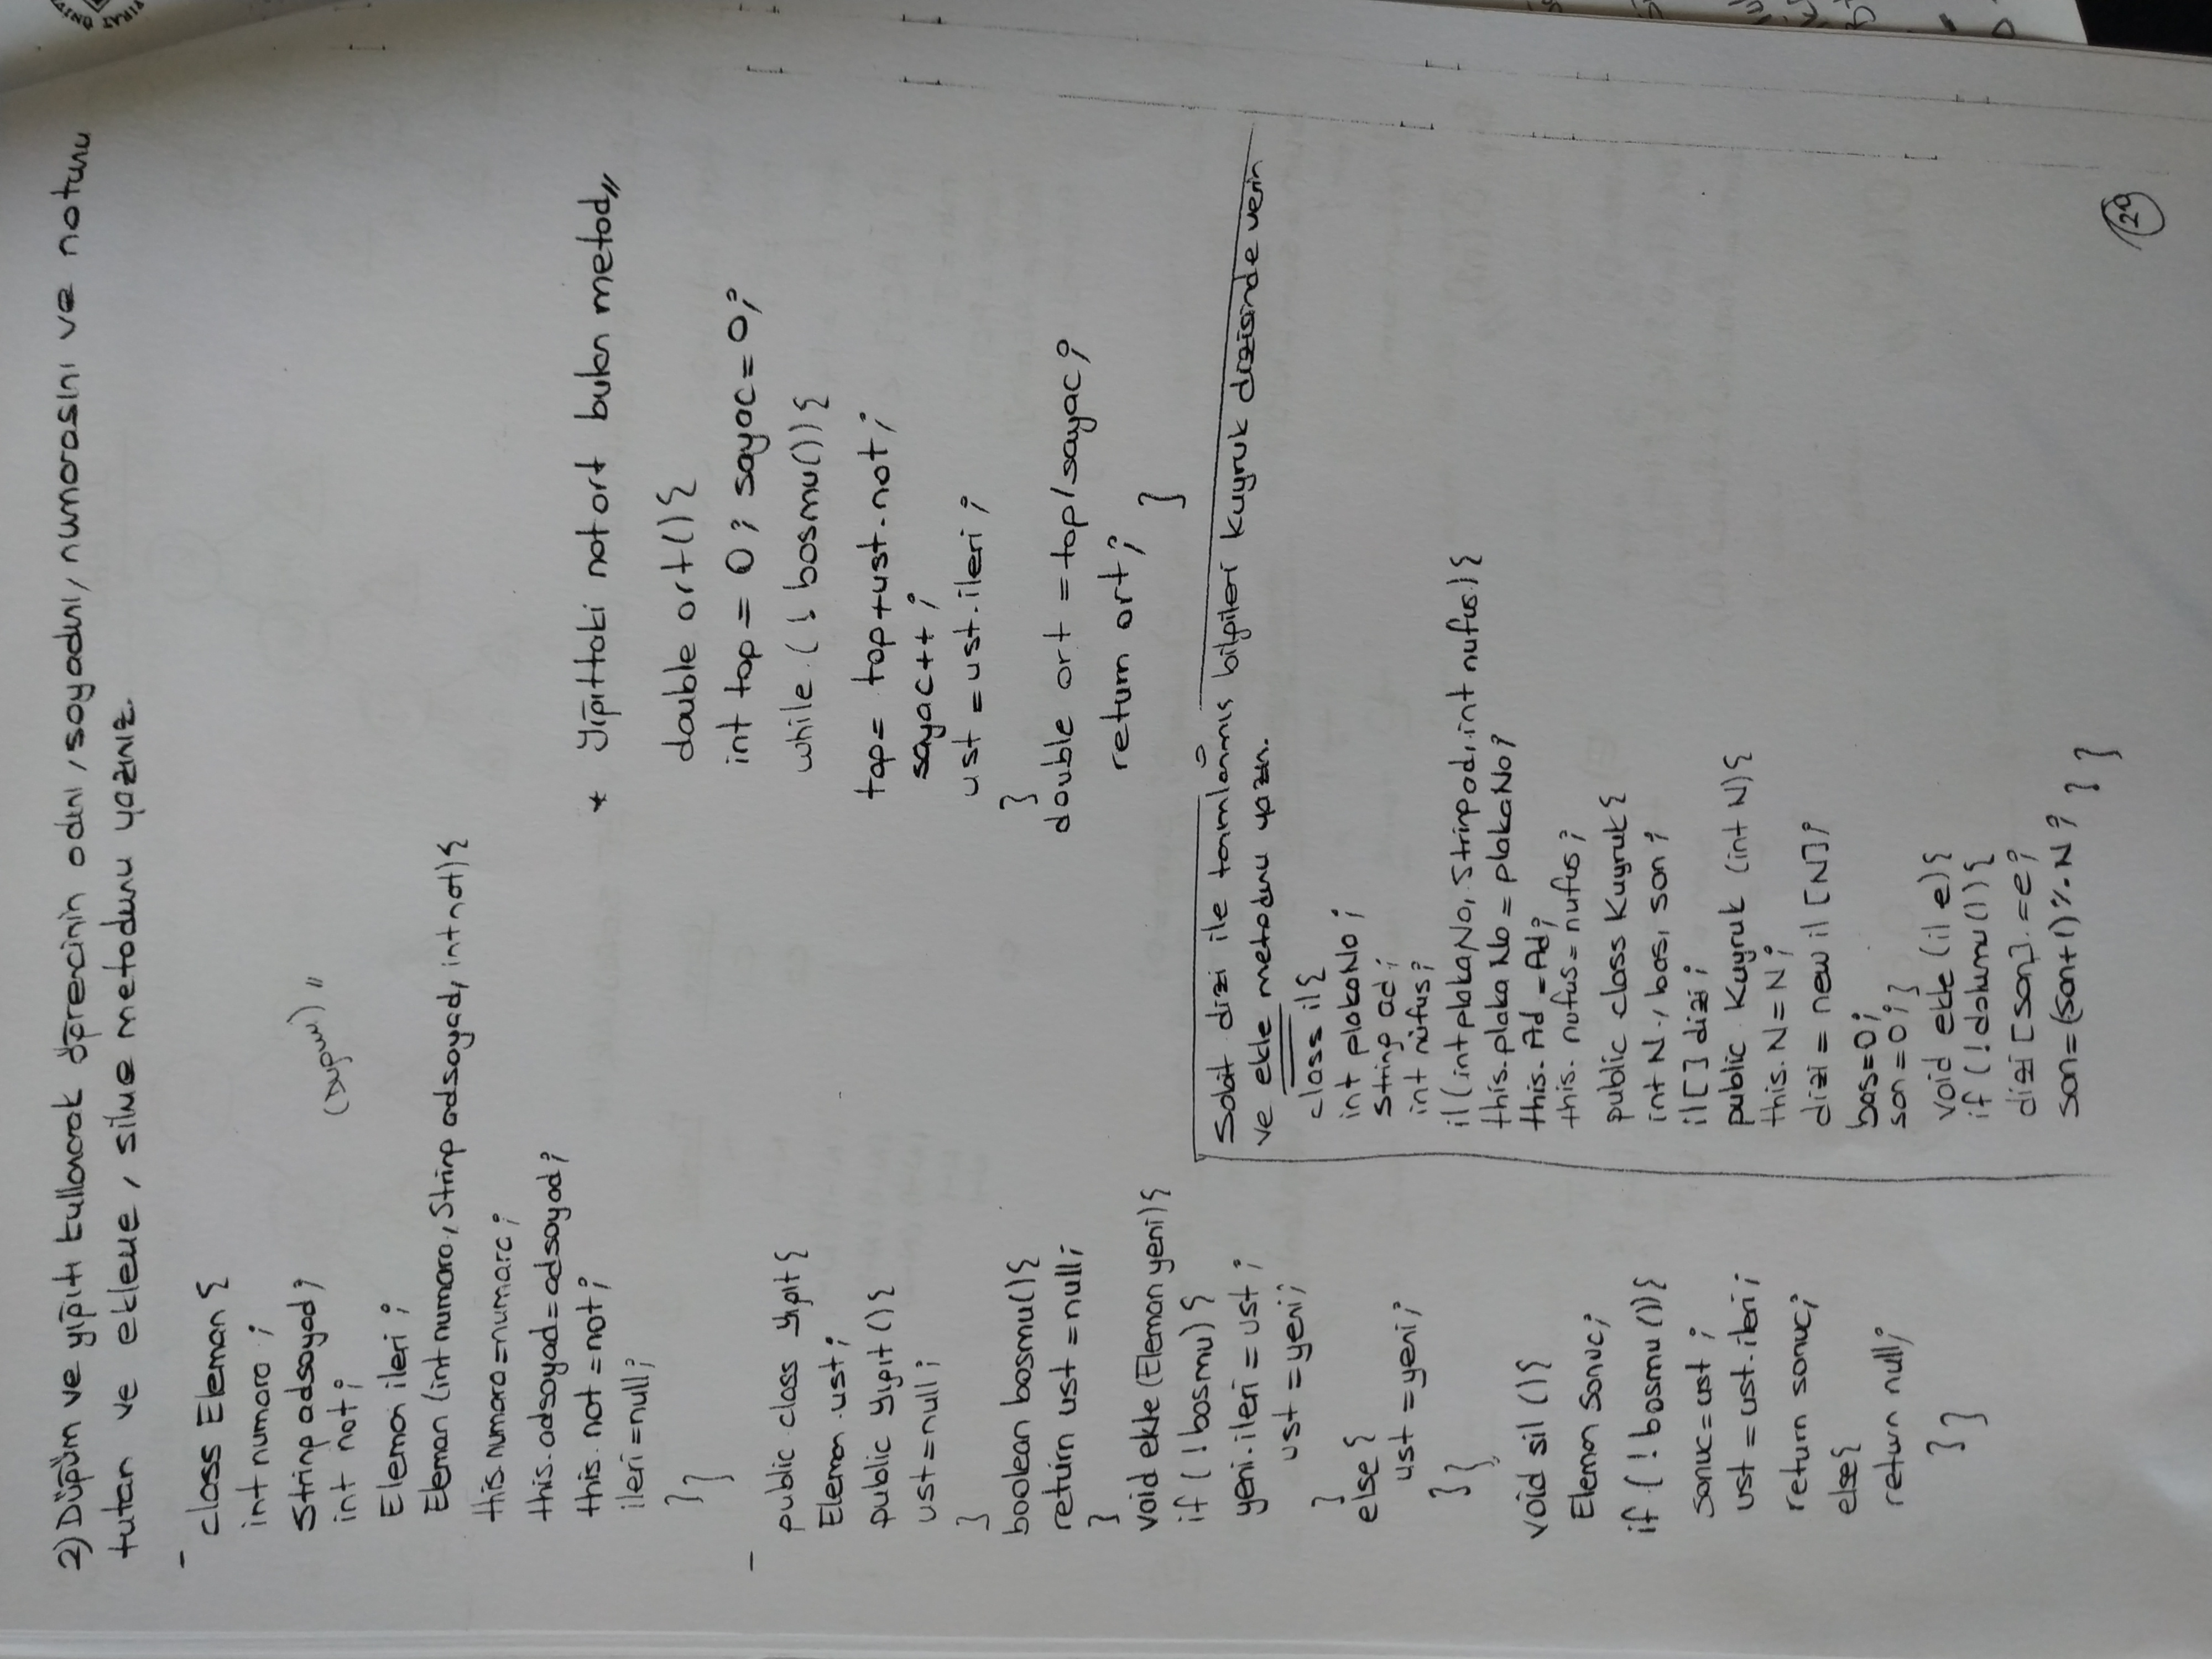 2) Düğüm ve yığıtı kullanarak öğrencinin adını, soyadını, numarasını ve notunu
tutan ve ekleme, silme metodunu yazınız.
- class Eleman {
int numara;
String adsoyad;
int not;
(Düğüm) "
Eleman ileri;
Eleman (int numara, String adsoyad, int not) {
this.numara = numara;
this.adsoyad = adsoyad;
this.not = not;
ileri = null;
}}
- public class Yıgıt {
Eleman ust;
public Yıgıt () {
ust = null;
}
boolean bosmu() {
return ust = null;
}
void ekle (Eleman yeni) {
if (!bosmu) {
yeni.ileri = ust;
ust = yeni;
}
else {
ust = yeni;
}}
void sil () {
Eleman sonuc;
if (!bosmu()) {
sonuc = ust;
ust = ust.ileri;
return sonuc;
else {
return null;
}}
* Yığıttaki not ort bulan metod "
double ort() {
int top = 0; sayac = 0;
while (!bosmu()) {
top = top + ust.not;
sayac++;
ust = ust.ileri;
}
double ort = top/sayac;
return ort;
}
Sabit dizi ile tanımlanmıs bilgileri kuyruk dizisinde verin
ve ekle metodunu yazın.
class il {
int plakaNo;
string ad;
int nüfus;
il (int plakaNo, String ad, int nufus) {
this.plakaNo = plakaNo;
this.Ad = Ad;
this.nufus = nufus;
public class Kuyruk {
int N, bas, son;
il [] dizi;
public Kuyruk (int N) {
this.N = N;
dizi = new il [N];
bas = 0;
son = 0; }
void ekle (il e) {
if (!dolumu()) {
dizi [son] = e;
son = (son+1) % N; } }
29